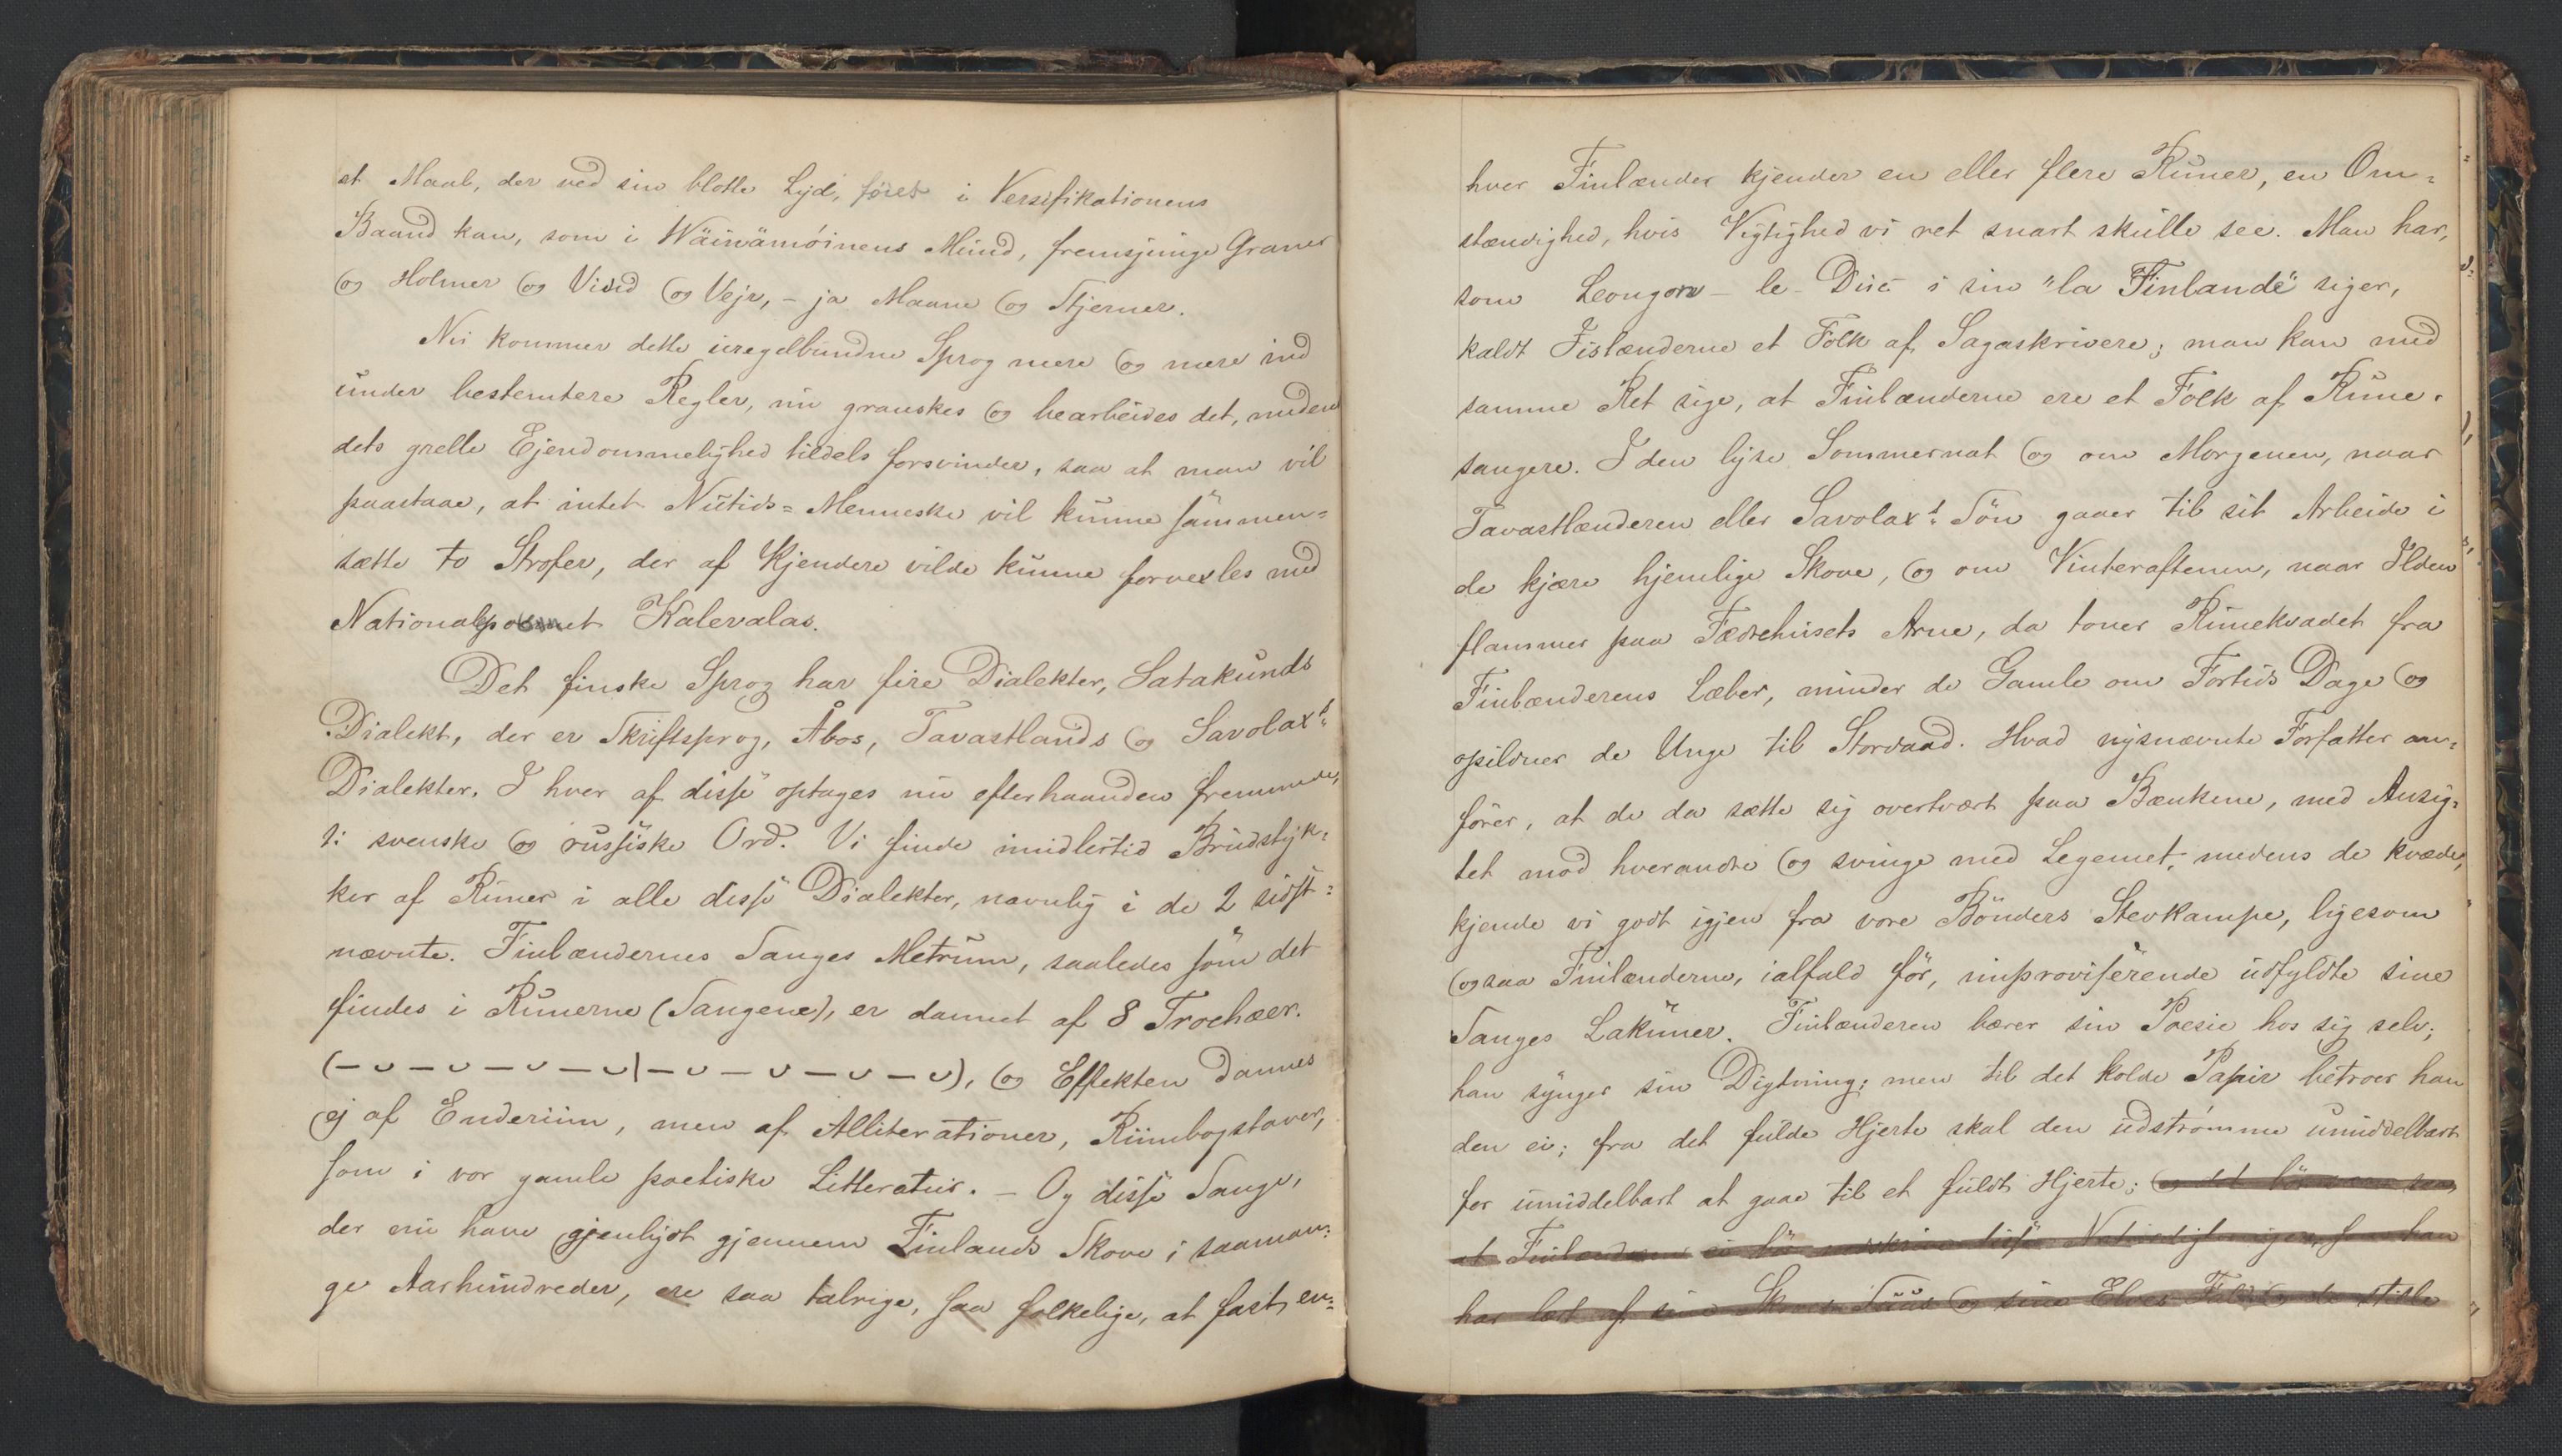 et Maal, der ved sin blotte Lyd, føiet i Versifikationens
Baand kan, som i Wäinämöinens Mund, fremsjunge Graner
og Holmer og Vind og Vejr, – ja Maane og Stjerner.
Nu kommer dette uregelbundne Sprog mere og mere ind
under bestemtere Regler, nu granskes og bearbeides det, meden
dets grelle Ejendommelighed tildels forsvinder, saa at man vil
paastaae, at intet Nutids=Menneske vil kunne sammen=
sætte to Strofer, der af Kjendere vilde kunne forvexles med
Nationalpoemet Kalevalas.
Det finske Sprog har fire Dialekter, Satakunds
Dialekt, der er Skriftsprog, Åbos, Tavastlands og Savolax's
Dialekter. I hver af disse optages nu efterhaanden fremmede,
ɔ: svenske og russiske Ord. Vi finde imidlertid Brudstyk=
ker af Runer i alle disse Dialekter, navnlig i de 2 sidst=
nævnte. Finlændernes Sanges Metrum, saaledes som det
findes i Runerne (Sangene), er dannet af 8 Trochæer.
(– ᴗ – ᴗ – ᴗ – ᴗ | – ᴗ – ᴗ – ᴗ – ᴗ), og Effekten dannes
ej af Enderiim, men af Alliterationer, Riimbogstaver,
som i vor gamle poetiske Litteratur. – Og disse Sange,
der nu have gjenlydt gjennem Finlands Skove i saaman=
ge Aarhundreder, ere saa talrige, saa folkelige, at fast en=
hver Finlænder kjender en eller flere Runer, en Om=
stændighed, hvis Vigtighed vi ret snart skulle see. Man har,
som Leouzon – le – Duc i sin "la Finlande" siger,
kaldt Islænderne et Folk af Sagaskrivere; man kan med
samme Ret sige, at Finlænderne ere et Folk af Rune=
sangere. I den lyse Sommernat og om Morgenen, naar
Tavastlænderen eller Savolax's Søn gaaer til sit Arbeide i
de kjære hjemlige Skove, og om Vinteraftenen, naar Ilden
flammer paa Fædrehusets Arne, da toner Runekvadet fra
Finlænderens Læber, minder de Gamle om Fortids Dage og
opildner de Unge til Stordaad. Hvad nysnævnte Forfatter an=
fører, at de da sætte sig overtvært paa Bænkene, med Ansig=
tet mod hverandre og svinge med Legemet, medens de kvæde,
kjende vi godt igjen fra vore Bönders Stevkampe, ligesom
ogsaa Finlænderne, ialfald før, improviserende udfyldte sine
Sanges Lakuner. Finlænderen bærer sin Poesie hos sig selv;
han synger sin Digtning; men til det kolde Papir betroer han
den ei; fra det fulde Hjerte skal den udstrømme umiddelbart
for umiddelbart at gaae til et fuldt Hjerte; og det
at Finlænderen ei han
har lært af sine Skoves Suus og sine Elves Fald og de stille